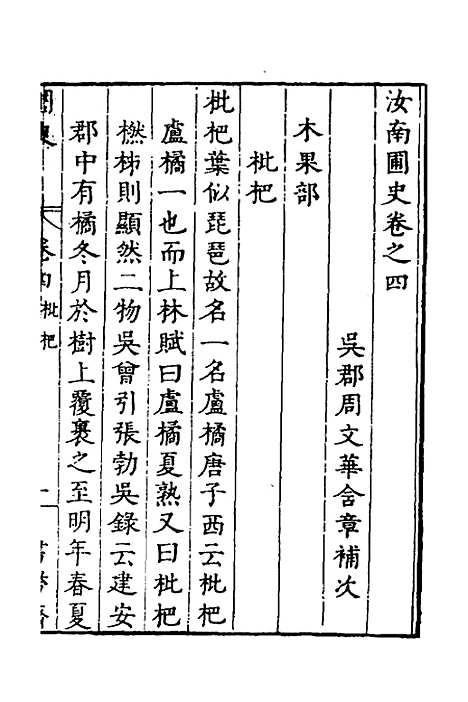 汝南圃史卷之四
吳郡周文華含章補次
木果部
枇杷
枇杷葉似琵琶故名一名盧橘唐子西云枇杷
盧橘一也而上林賦曰盧橘夏熟又曰枇杷
橪柿則顯然二物吳曾引張勃吳錄云建安
郡中有橘冬月於樹上覆裹之至明年春夏
圃史
卷四 枇杷
一
書帶齋